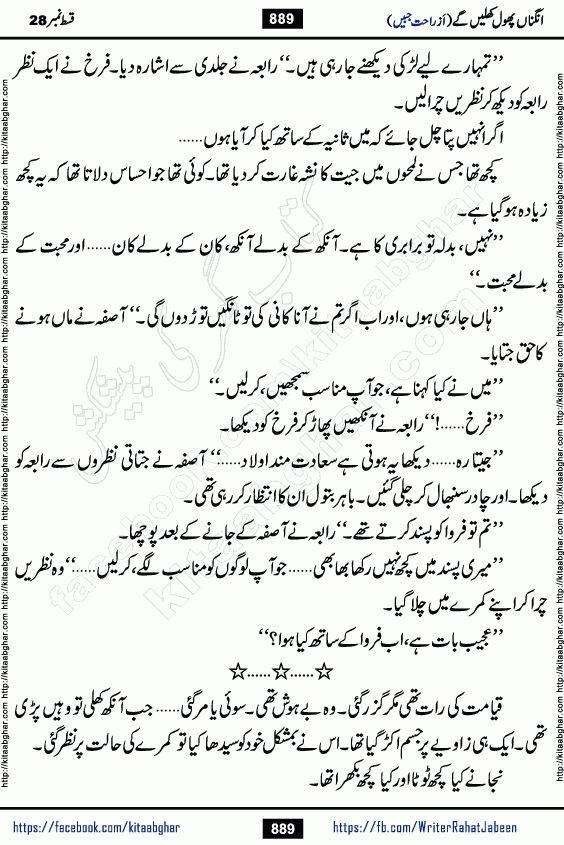 انگناں پھول کھلیں گے (از راحت جبیں)
889
قسط نمبر 28
’’تمہارے لیے لڑکی دیکھنے جا رہی ہیں۔‘‘ رابعہ نے جلدی سے اشارہ دیا۔ فرخ نے ایک نظر
رابعہ کو دیکھ کر نظریں چرالیں۔
اگر انہیں پتا چل جائے کہ میں ثانیہ کے ساتھ کیا کر آیا ہوں......
کچھ تھا جس نے لمحوں میں جیت کا نشہ غارت کر دیا تھا۔ کوئی تھا جو احساس دلاتا تھا کہ یہ کچھ
زیادہ ہو گیا ہے۔
’’نہیں، بدلہ تو برابری کا ہے۔ آنکھ کے بدلے آنکھ، کان کے بدلے کان...... اور محبت کے
بدلے محبت۔‘‘
’’ہاں جا رہی ہوں، اور اب اگر تم نے آنا کانی کی تو ٹانگیں توڑ دوں گی۔‘‘ آصفہ نے ماں ہونے
کا حق جتایا۔
’’میں نے کیا کہنا ہے، جو آپ مناسب سمجھیں، کر لیں۔‘‘
’’فرخ......!‘‘ رابعہ نے آنکھیں پھاڑ کر فرخ کو دیکھا۔
’’جیتا رہ...... دیکھا یہ ہوتی ہے سعادت مند اولاد......‘‘ آصفہ نے جتاتی نظروں سے رابعہ کو
دیکھا۔ اور چادر سنبھال کر چلی گئیں۔ باہر بتول ان کا انتظار کر رہی تھی۔
’’تم تو فروا کو پسند کرتے تھے۔‘‘ رابعہ نے آصفہ کے جانے کے بعد پوچھا۔
’’میری پسند میں کچھ نہیں رکھا بھابھی...... جو آپ لوگوں کو مناسب لگے، کر لیں......‘‘ وہ نظریں
چرا کر اپنے کمرے میں چلا گیا۔
’’عجیب بات ہے، اب فروا کے ساتھ کیا ہوا؟‘‘
☆......☆......☆
قیامت کی رات تھی مگر گزر گئی۔ وہ بے ہوش تھی۔ سوئی یا مر گئی...... جب آنکھ کھلی تو وہیں پڑی
تھی۔ ایک ہی زاویے پر جسم اکڑ گیا تھا۔ اس نے بمشکل خود کو سیدھا کیا تو کمرے کی حالت پر نظر گئی۔
نجانے کیا کچھ ٹوٹا اور کیا کچھ بکھرا تھا۔
https://facebook.com/kitaabghar
889
https://fb.com/WriterRahatJabeen
http://kitaabghar.com http://kitaabghar.com http://kitaabghar.com http://kitaabghar.com http://kitaabghar.com http://kitaabghar.com
http://kitaabghar.com http://kitaabghar.com http://kitaabghar.com http://kitaabghar.com http://kitaabghar.com http://kitaabghar.com
کتاب گھر کی پیشکش
kitaabghar.com
facebook.com/kitaabghar